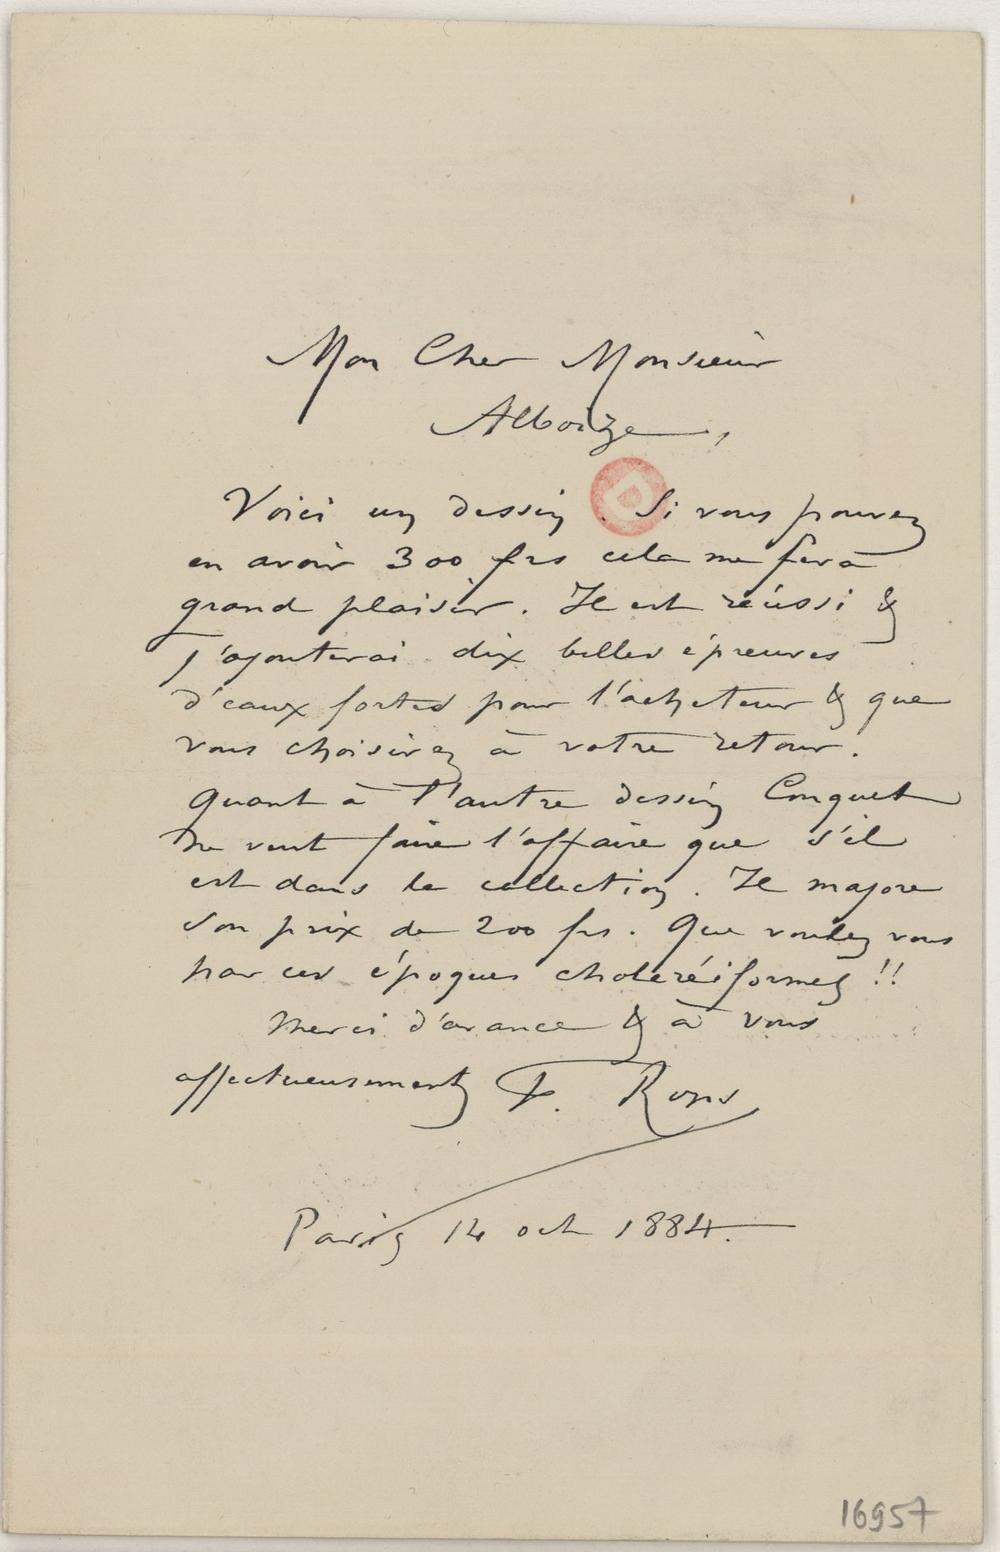 Mon Cher Monsieur
Alboize,
D
Voici un dessin. Si vous pouvez
en avoir 300 frs cela me fera
grand plaisir. Il est réussi &
j'ajouterai dix belles épreuves
d'eaux fortes pour l'acheteur & que
vous choisirez à votre retour.
Quant à l'autre dessin Conquet
ne veut faire l'affaire que s'il
est dans la collection. Il majore
son prix de 200 frs. Que voulez vous
par ces époques choleréiformes !!
Merci d'avance & à vous
affectueusement F. Rops
Paris 14 oct 1884.
16957